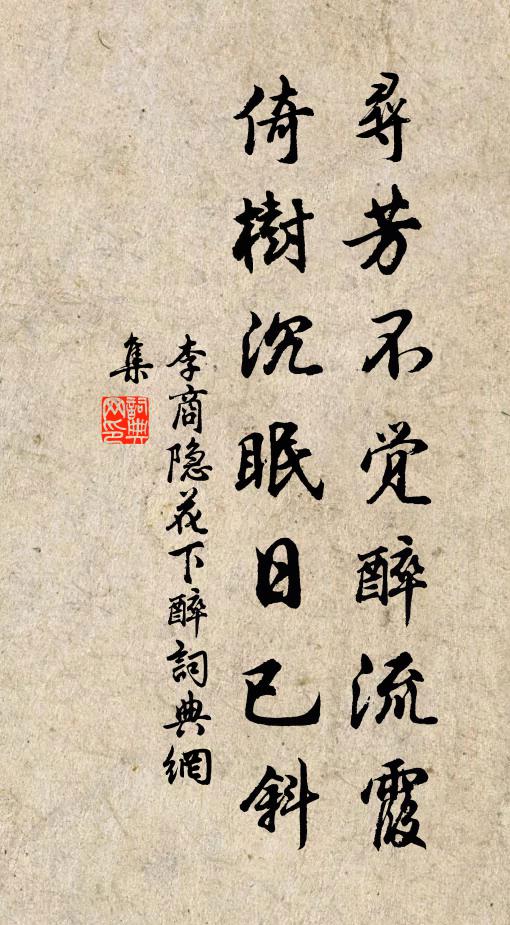 尋芳不觉醉流霞
倚樹沉眠日已斜
李商隐花下醉詞典網
集
詞典
网印